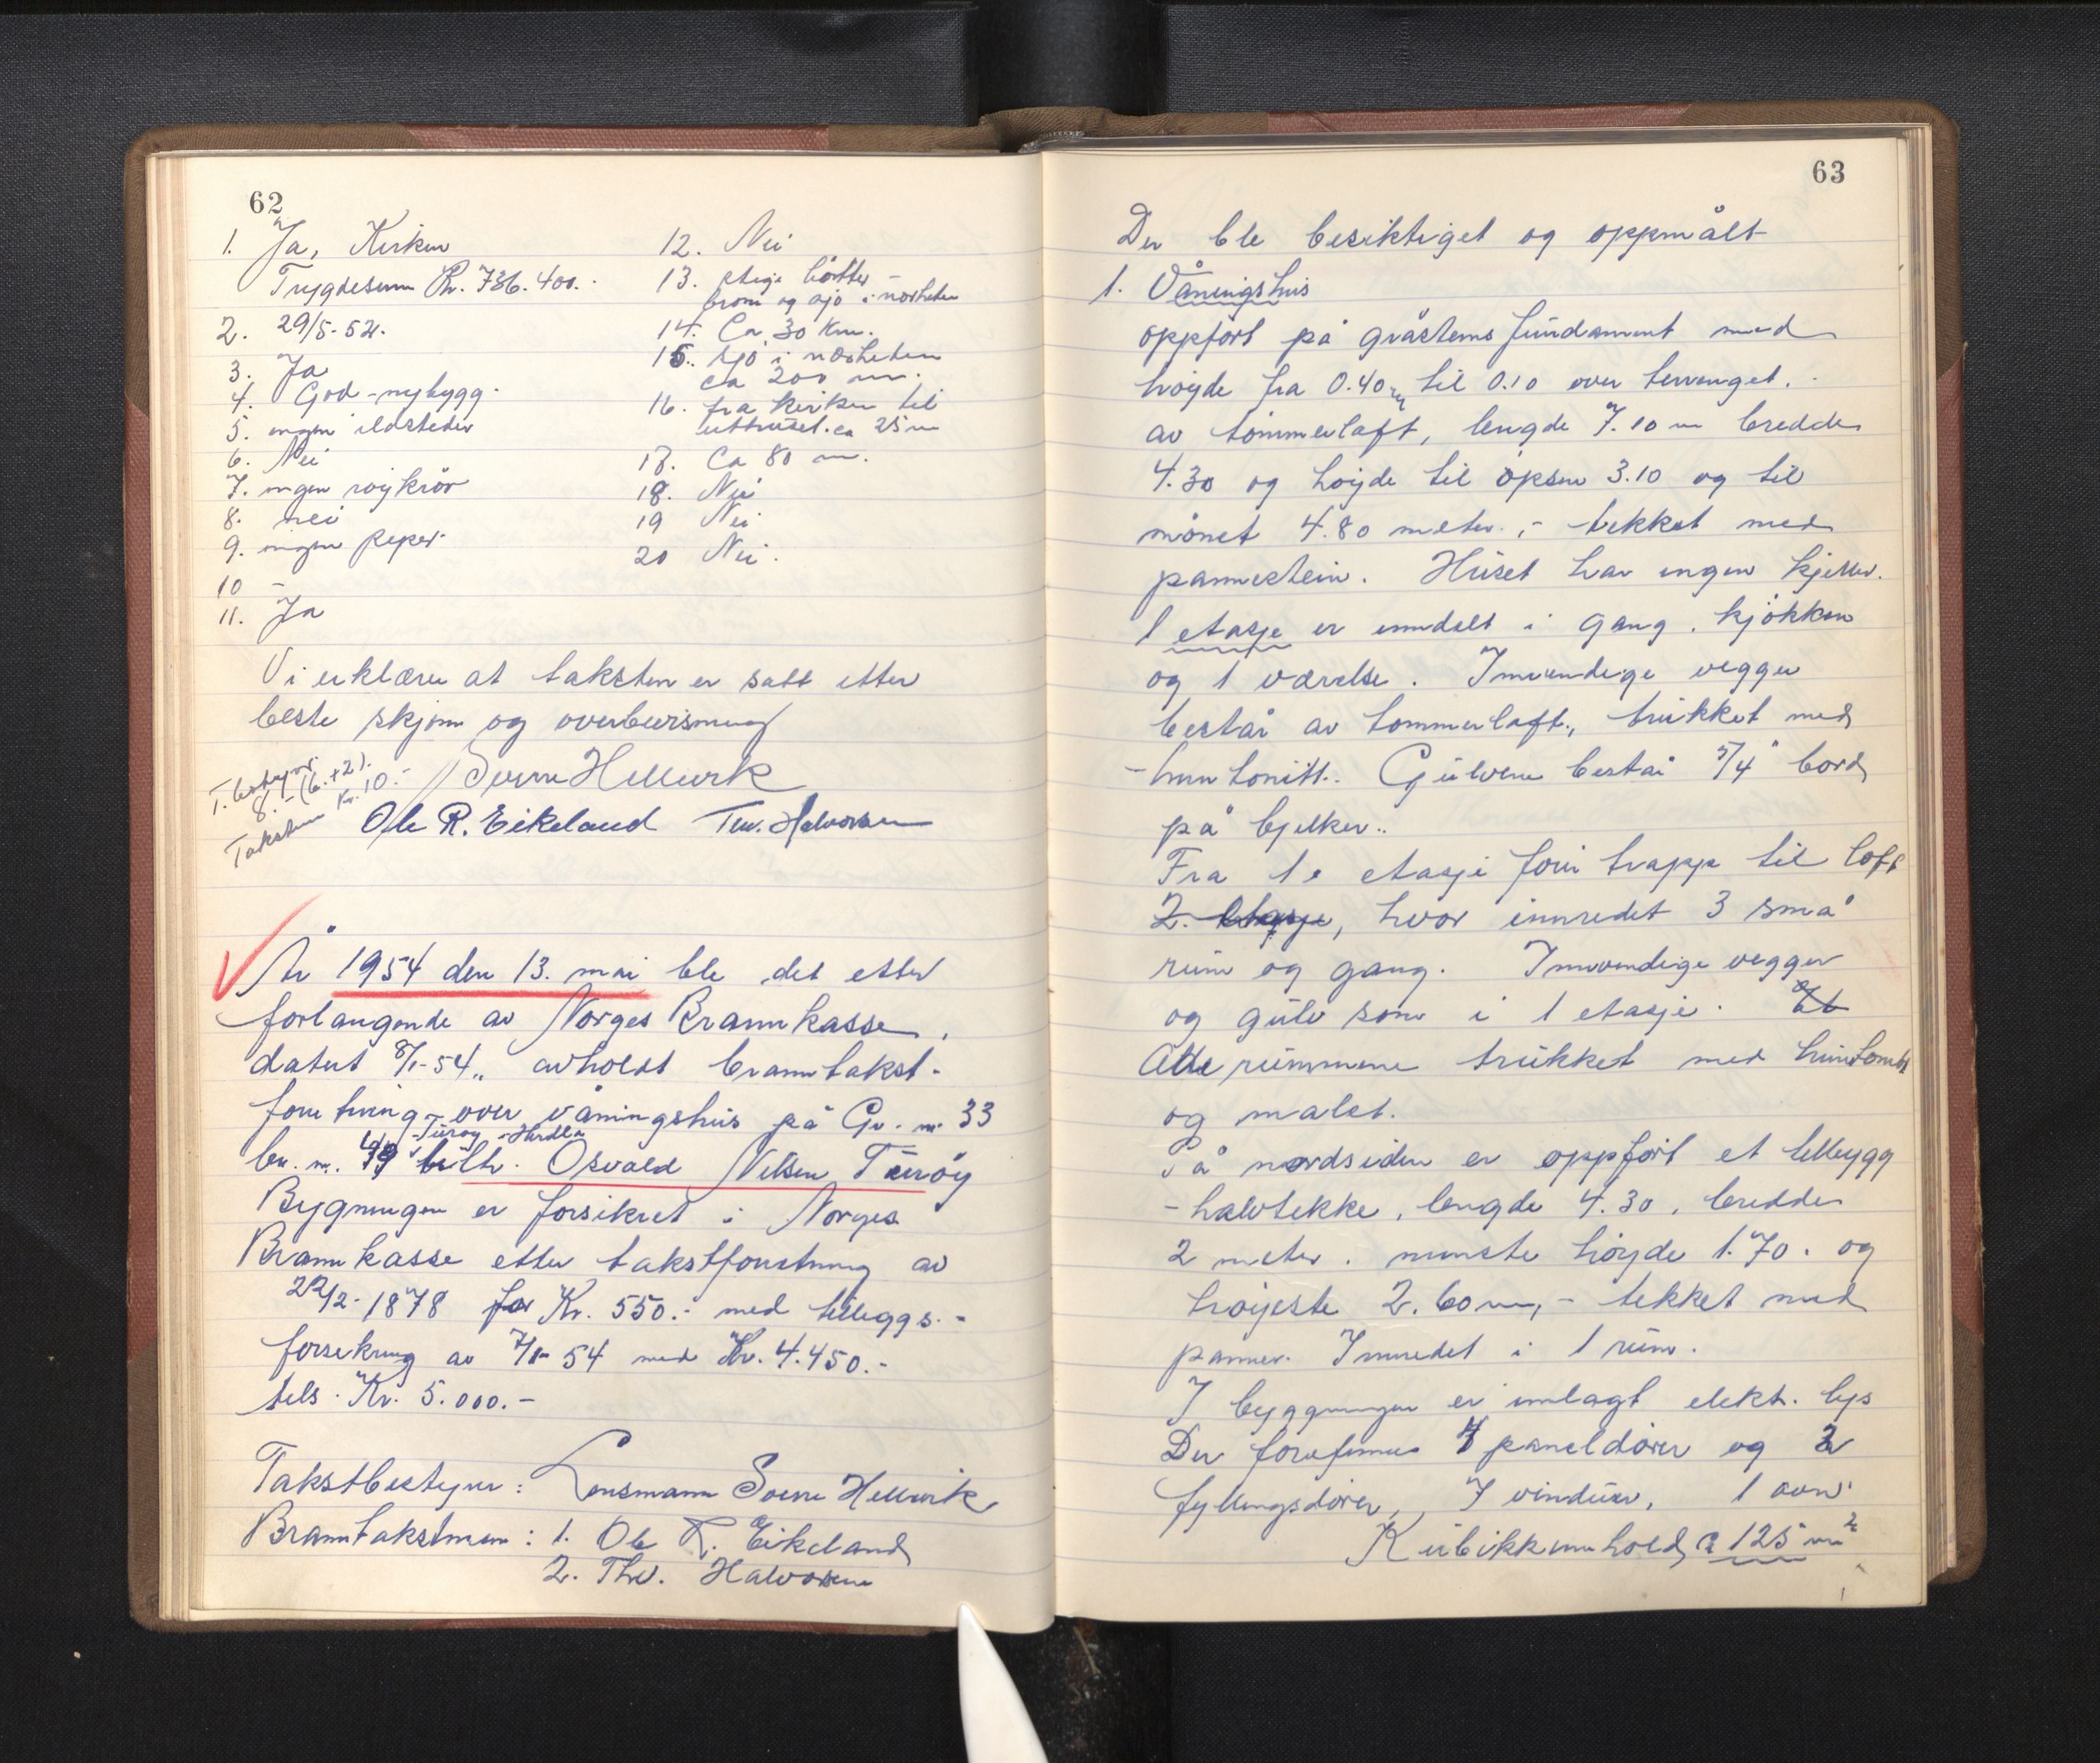 62
1. Ja, Kirken
Trygdesum Kr. 736.400.-
2. 29/5-52.
3. Ja
4. God - nybygg.
5. ingen ildsteder
6. Nei
7. ingen røykrör
8. nei
9. ingen peper.
10 -
11. Ja
12. Nei
13. stige bötter -
brom og sjö i nærheten
14. Ca 30 km.
15. sjö i nærheten
ca 200 m.
16. fra kirken til
uthuset. ca 25 m
17. Ca 80 m.
18. Nei
19 Nei
20 Nei.
Vi erklærer at taksten er satt etter
beste skjønn og overbevisning
T. bestyrer
8.- (6.+2).
Takstm Kr. 10.-
Sverre Hellevik
Ole R. Eikeland Thv. Halvorsen
År 1954 den 13. mai ble det etter
forlangende av Norges Brannkasse,
datert 8/1-54,, avholdt branntakst-
forretning over våningshus på Gr. nr 33
- Turøy i Herdla
br. nr. 49 tilh. Osvald Nilsen Turöy
Bygningen er forsikret i Norges
Brannkasse etter takstforretning av
22/2-1878 for Kr. 550.- med tilleggs.-
forsikring av 7/1-54 med Kr. 4.450.-
tils. Kr. 5.000.-
Takstbestyrer: Lensmann Sverre Hellevik
Branntakstmenn: 1. Ole R. Eikeland
2. Thv. Halvorsen
63
Der ble besiktiget og oppmålt
1. Våningshus
oppfört på gråstens fundament med
höyde fra 0.40 m til 0.10 over terrenget.
av tömmerlaft, lengde 7.10 m bredde
4.30 og höyde til öpsen 3.10 og til
mönet 4.80 meter.,- tekket med
pannestein. Huset har ingen kjeller.
1 etasje er inndelt i gang, kjökken
og 1 værelse. Innvendige vegger
består av tommerlaft, trukket med
- huntonitt. Gulvene består 5/4" bord
på bjelker..
Fra 1. etasje förer trapp til loft
2. etasje, hvor innredet 3 små
rum og gang. Innvendige vegger
og gulv som i 1 etasje. Et
Alle rummene trukket med huntonitt
og malet.
På nordsiden er oppfört et tilbygg
- halvtekke, lengde 4.30, bredde
2 meter. minste höyde 1.70. og
höyeste 2.60 m,- tekket med
panner. Innredet i 1 rum.
I byggningen er innlagt elekt. lys
Der forefinnes 4 paneldörer og 2
fyllingsdörer, 7 vinduer, 1 ovn.
Kubikkinnhold ca 125 m²